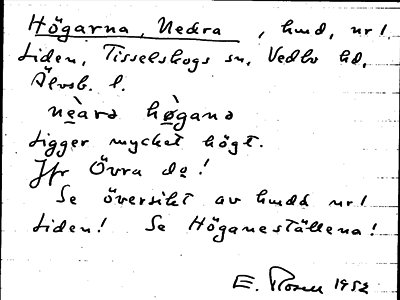 Högarna, Nedra, hmd, nr 1.
Liden, Tisselskogs sn, Vedbo hd,
Älvsb. l.
nèara hø̀gana
Ligger mycket högt.
Jfr Övra do!
Se översikt av hmdd nr 1
Liden! Se Höganeställena!
E. Rosen 1952